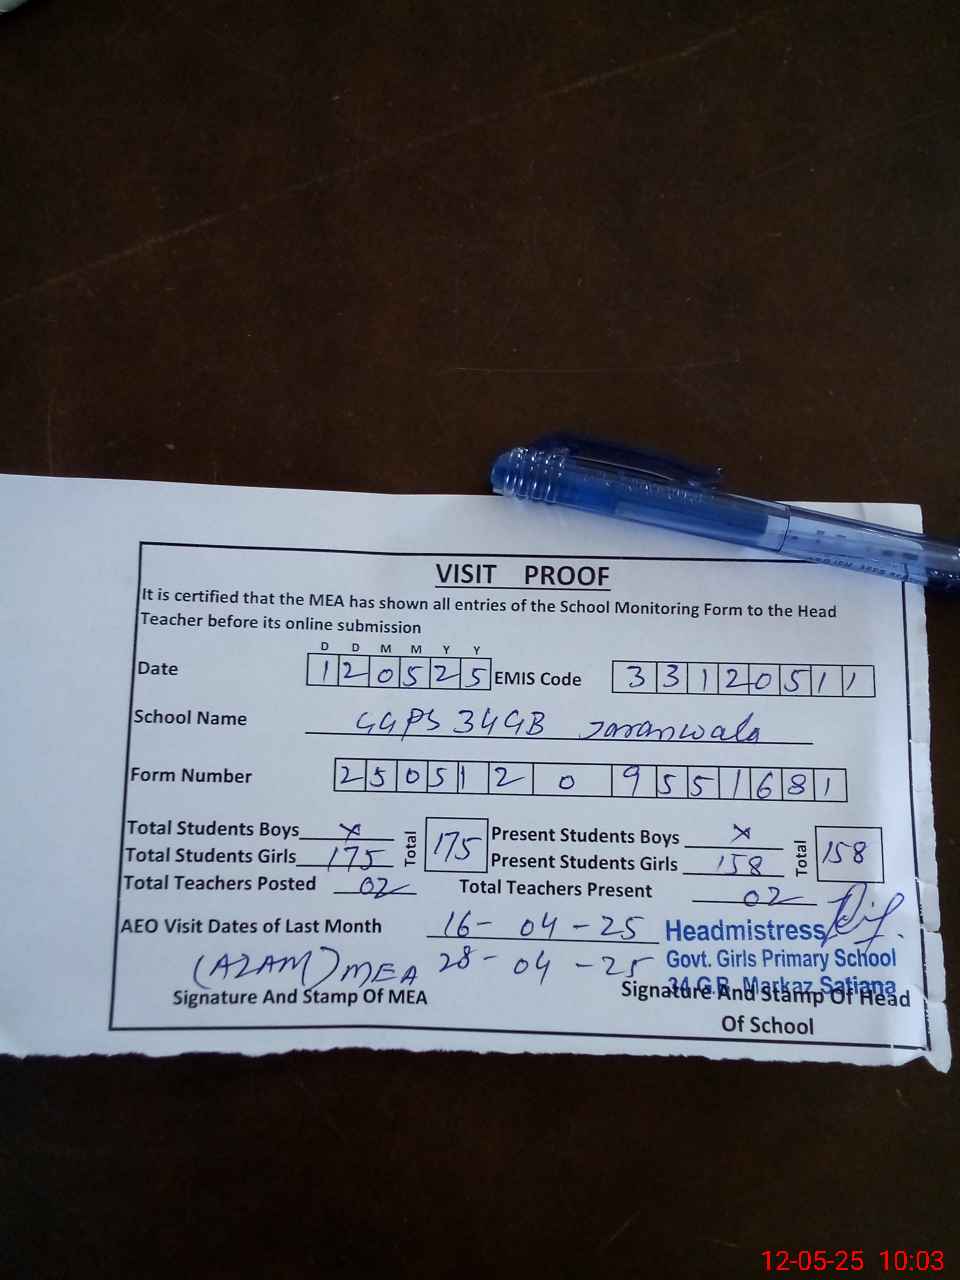 VISIT PROOF
It is certified that the MEA has shown all entries of the School Monitoring Form to the Head
Teacher before its online submission
D D M M Y Y
Date 1 2 0 5 2 5 EMIS Code 3 3 1 2 0 5 1 1
School Name GGPS 34GB Jaranwala
Form Number 2 5 0 5 1 2 0 9 5 5 1 6 8 1
Total Students Boys x Total 175 Present Students Boys x Total 158
Total Students Girls 175 Present Students Girls 158
Total Teachers Posted 02 Total Teachers Present 02
AEO Visit Dates of Last Month 16-04-25 Headmistress
(AZAM) MEA 28-04-25 Govt. Girls Primary School
34 G.B. Markaz Satiana
Signature And Stamp Of MEA Signature And Stamp Of Head
Of School
12-05-25 10:03